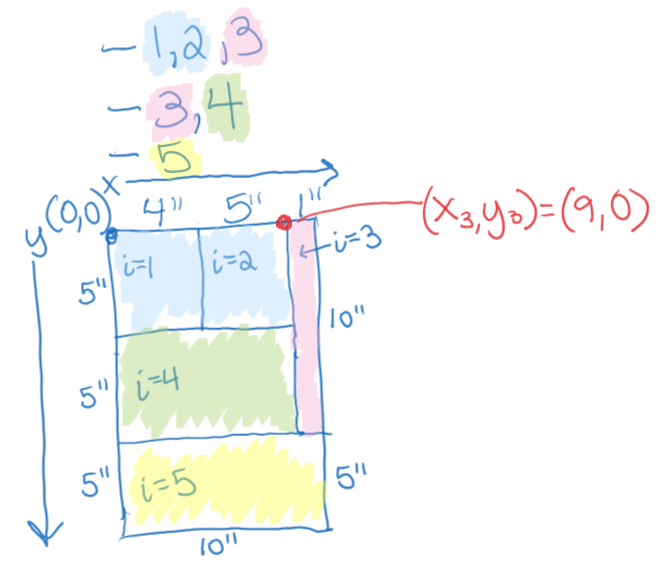 - 1,2,3
- 3,4
- 5
x
(0,0)
y
4" 5" 1"
(x₃,y₃)=(9,0)
i=1 i=2 i=3
5"
10"
i=4
5"
i=5
5" 5"
10"